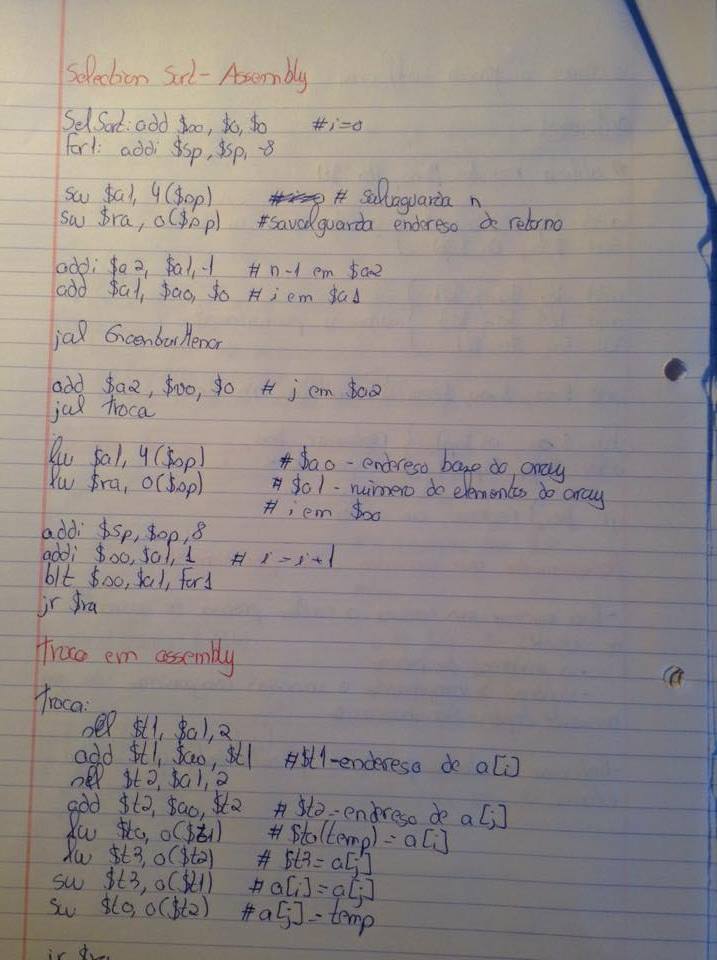 Selection Sort - Assembly
SelSort: add $so, $o, $o #i=o
for1: addi $sp, $sp, -8
sw $a1, 4($sp) # salvaguarda n
sw $ra, o($sp) #savalguarda endereso de retorno
addi $a2, $a1, -1 # n-1 em $a2
add $a1, $ao, $o # i em $a1
jal EncontrarMenor
add $a2, $vo, $o # j em $a2
jal troca
lw $a1, 4($sp) # $ao - endereso base do array
lw $ra, o($sp) # $a1 - número de elementos do array
# i em $so
addi $sp, $sp, 8
addi $so, $a1, 1 # i = i+1
blt $so, $a1, for1
jr $ra
Troca em assembly
Troca:
sll $t1, $a1, 2
add $t1, $ao, $t1 #$t1-endereso de a[i]
sll $t2, $a1, 2
add $t2, $ao, $t2 # $t2-endereso de a[j]
lw $to, o($t1) # $to(temp) = a[i]
lw $t3, o($t2) # $t3 = a[j]
sw $t3, o($t1) # a[i] = a[j]
sw $to, o($t2) #a[j] = temp
jr $ra